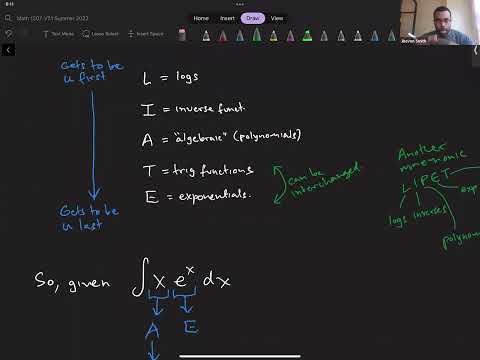 8:15
Math 1307-V01 Summer 2022
Home Insert Draw View
Text Mode Lasso Select Insert Space
Gets to be
u first
L = logs
I = inverse funct.
A = "algebraic" (polynomials)
T = trig functions
E = exponentials.
can be
interchanged
Gets to be
u last
Another
mnemonic
LIPET
logs inverses
exp
polynom
So, given ∫ x e^x dx
A E